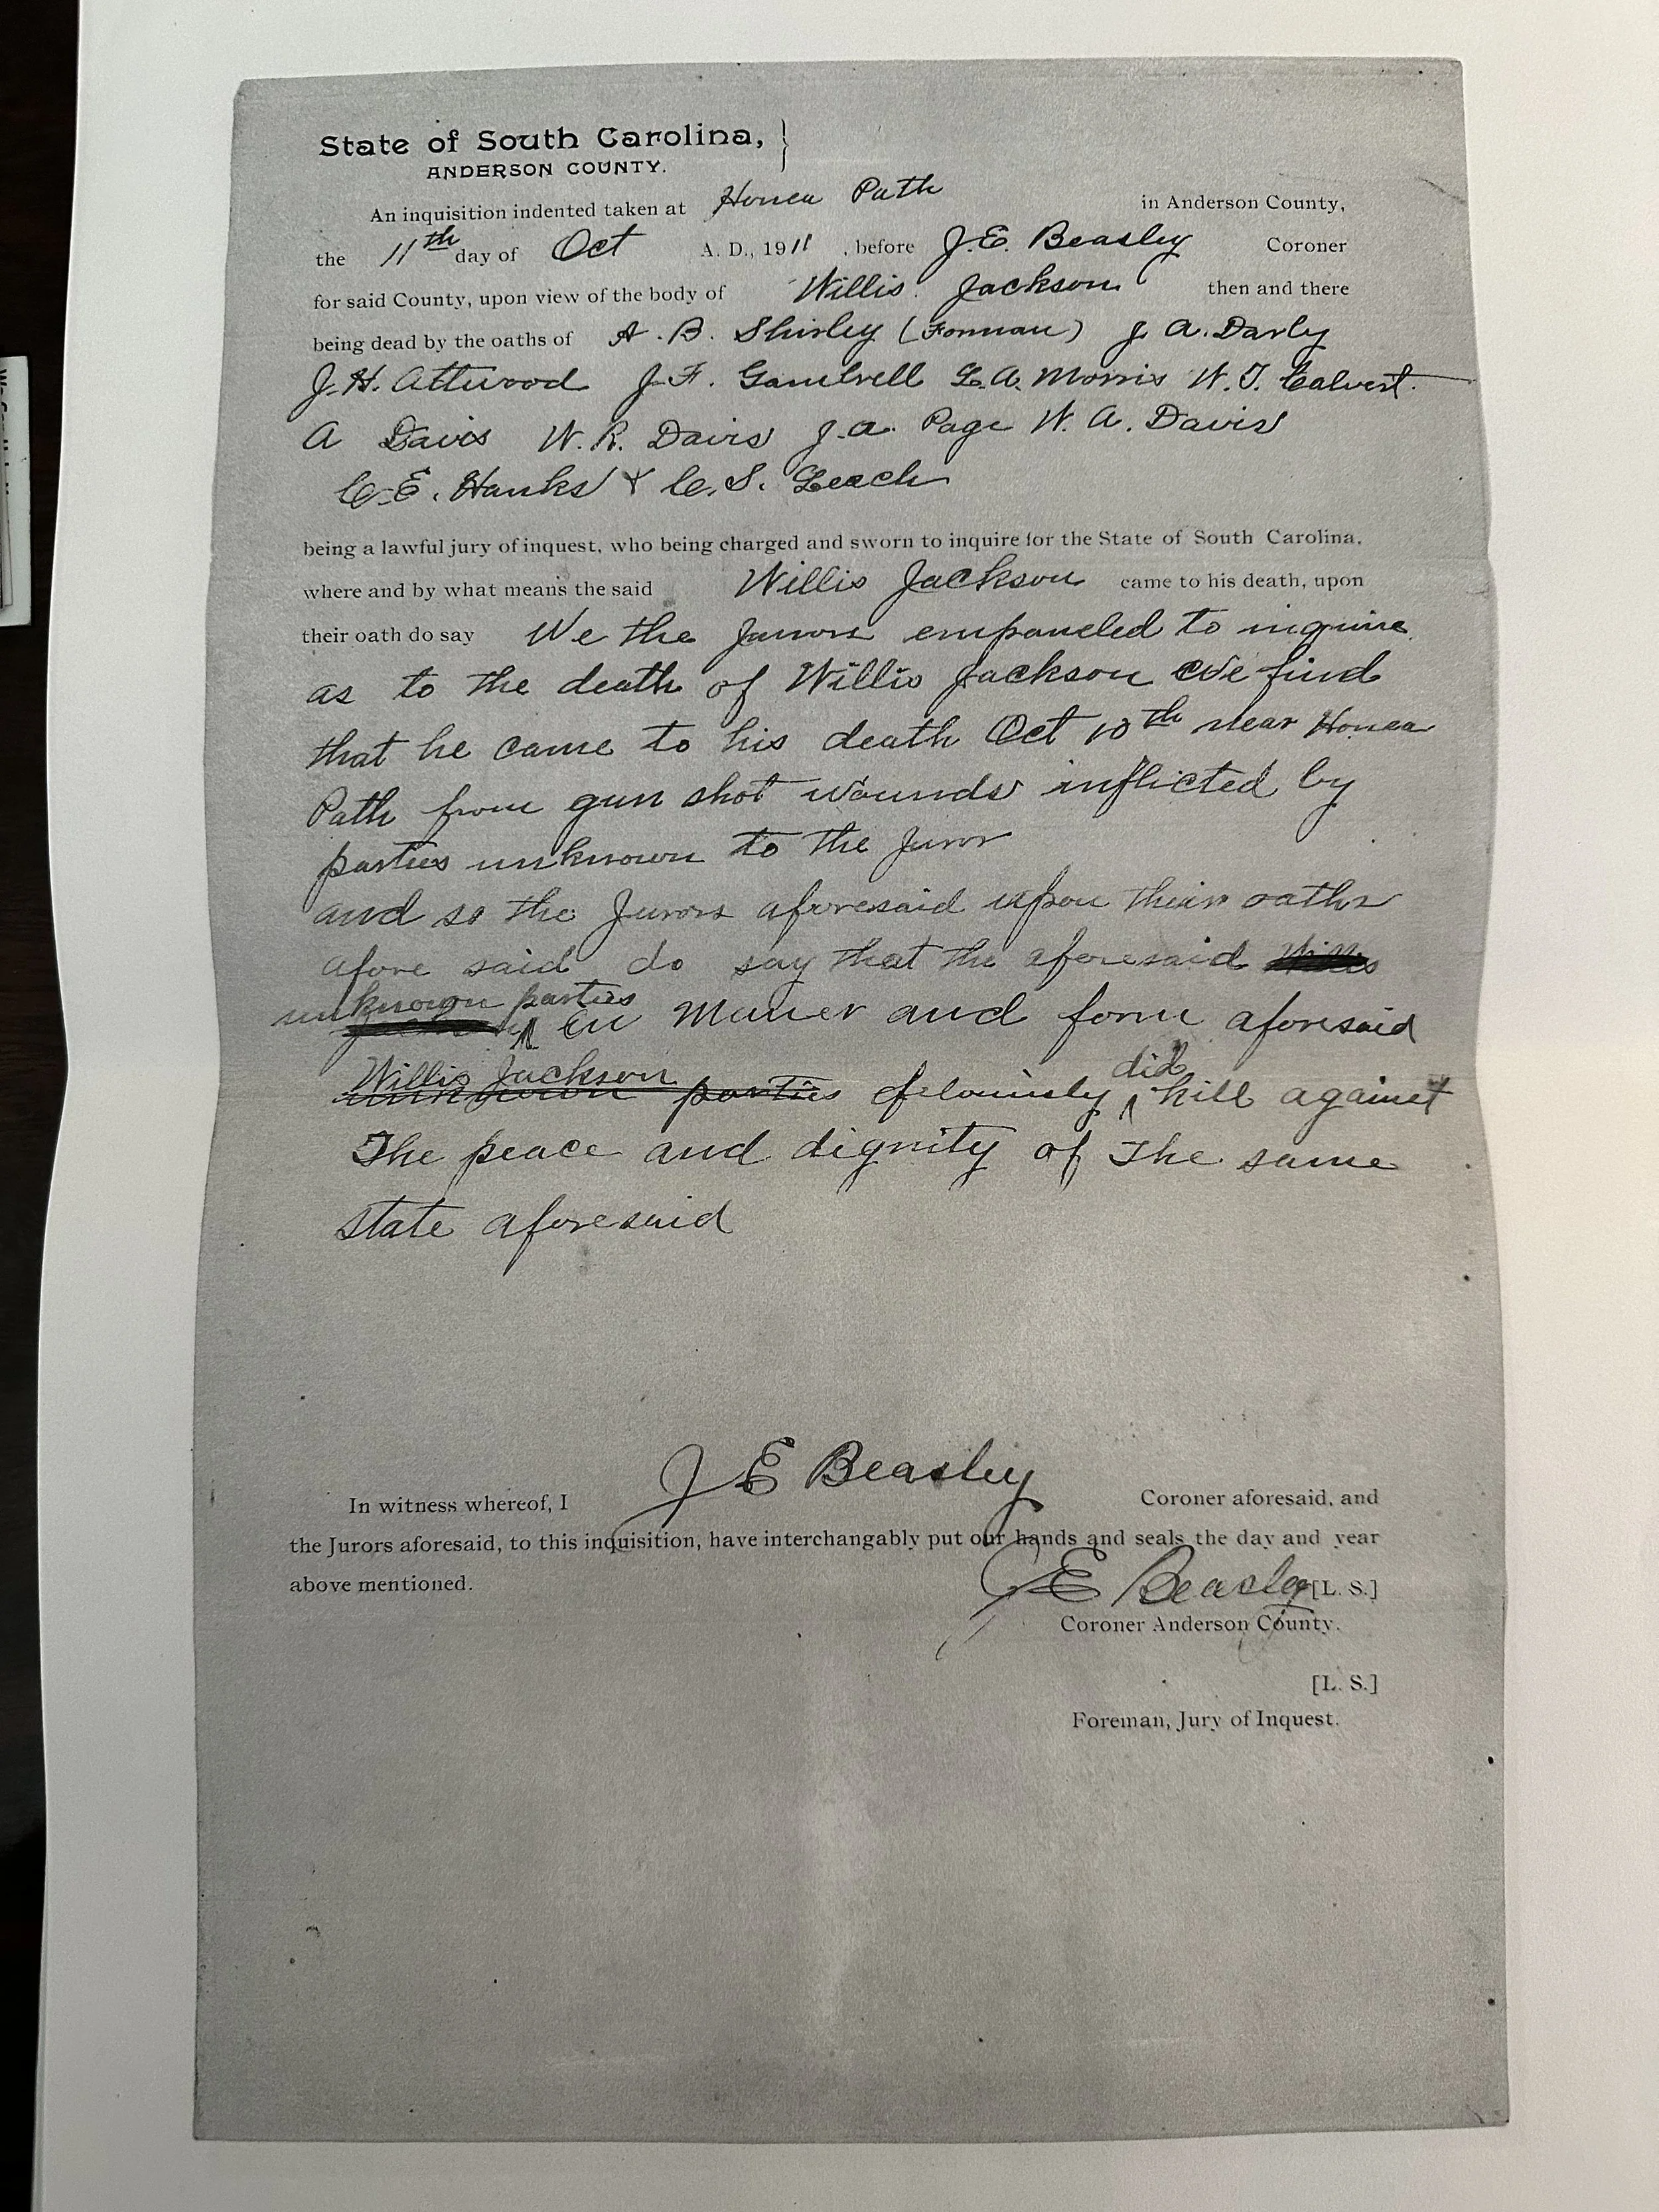 State of South Carolina, }
ANDERSON COUNTY.
An inquisition indented taken at Honea Path in Anderson County,
the 11th day of Oct A. D., 1911, before J.E. Beasley Coroner
for said County, upon view of the body of Willis Jackson then and there
being dead by the oaths of A. B. Shirley (Forman) J. A. Darby
J.H. Attwood J. F. Gambrell L. A. Morris W. T. Calvert.
A Davis W. R. Davis J. A. Page W. A. Davis
C. E. Hanks & C. S. Leach
being a lawful jury of inquest, who being charged and sworn to inquire for the State of South Carolina,
where and by what means the said Willis Jackson came to his death, upon
their oath do say We the Jurrors empaneled to inquire
as to the death of Willis Jackson We find
that he came to his death Oct 10th near Honea
Path from gun shot wounds inflicted by
parties unknown to the Juror
and so the Jurors aforesaid upon their oaths
afore said do say that the aforesaid Willis
unknown parties
in Maner and form aforesaid
Willis Jackson did
unknown parties feloniusly kill against
The peace and dignity of The same
state aforesaid
J E Beasley
In witness whereof, I Coroner aforesaid, and
the Jurors aforesaid, to this inquisition, have interchangably put our hands and seals the day and year
above mentioned.
J E Beasley [L. S.]
Coroner Anderson County.
[L. S.]
Foreman, Jury of Inquest.